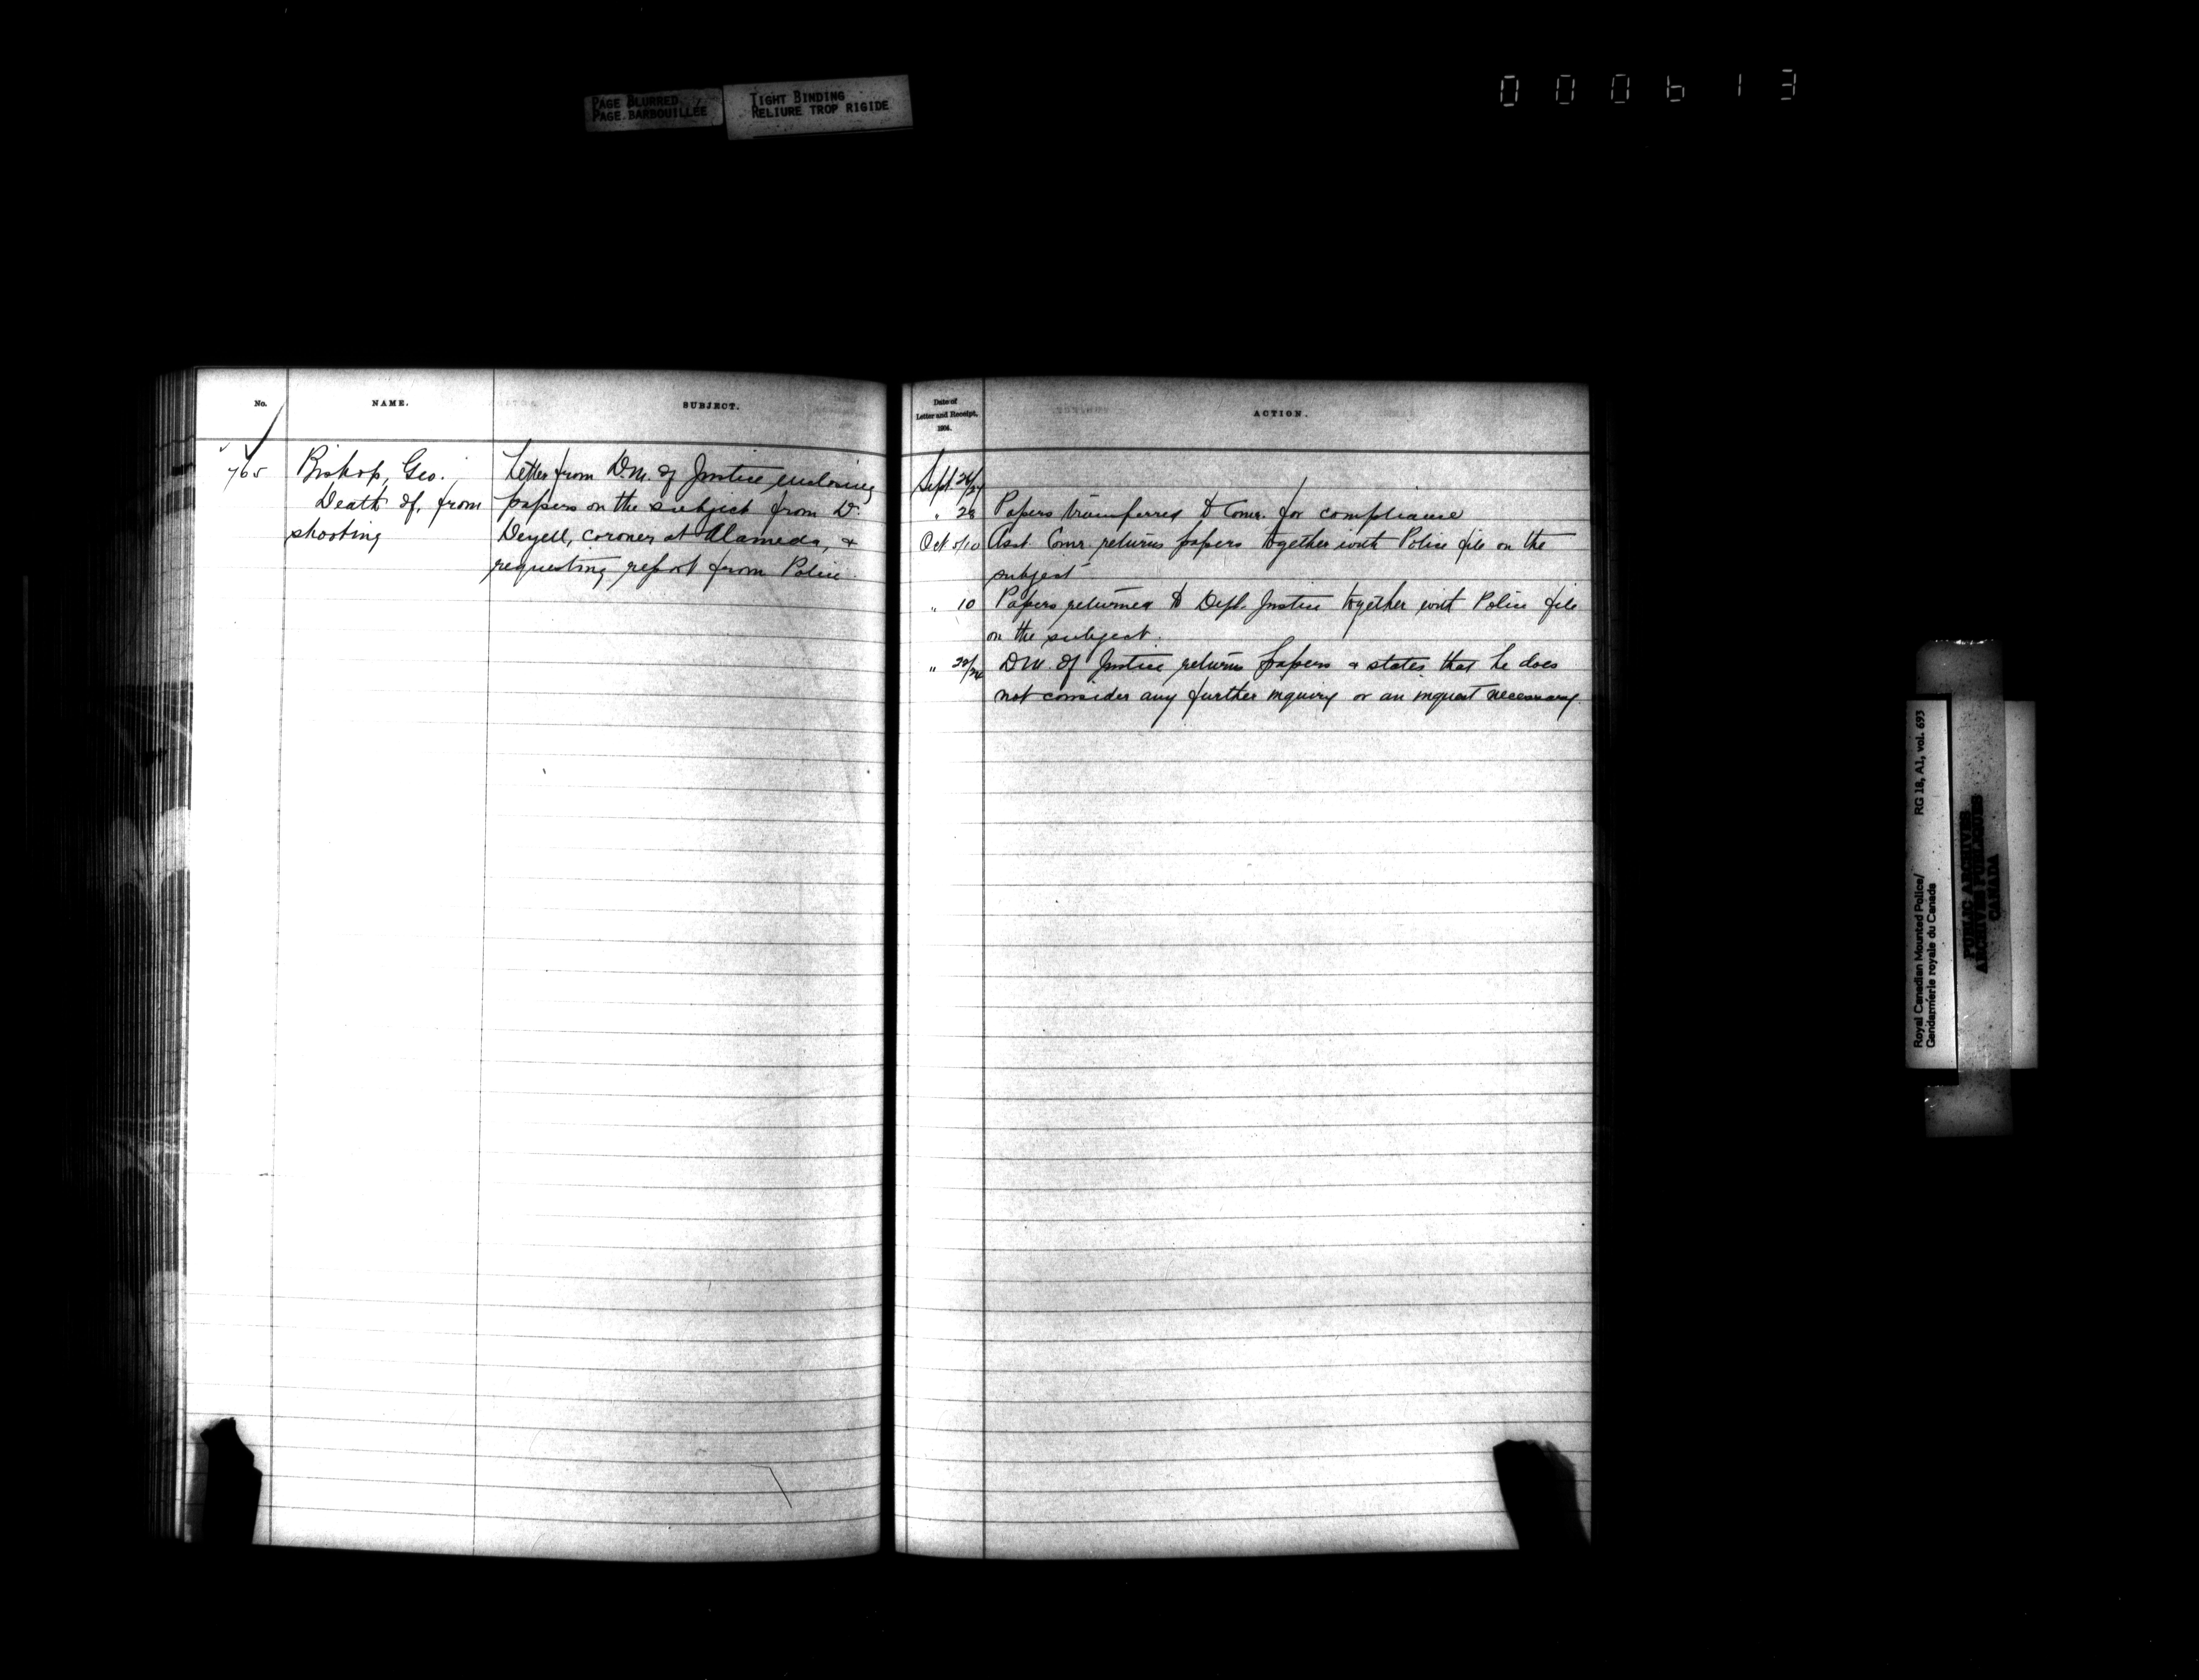 PAGE BLURRED
PAGE BARBOUILLÉE
TIGHT BINDING
RELIURE TROP RIGIDE
000613
No.
NAME.
SUBJECT.
765
Bishop, Geo.
Death of, from
shooting
Letter from D.M. of Justice enclosing
papers on the subject from Dr.
Deyell, coroner at Alameda, &
requesting report from Police.
Date of
Letter and Receipt,
1904.
ACTION.
Sept 26/27
" 28 Papers transferred to Comr. for compliance
Oct 5/10 Asst. Comr. returns papers together with Police file on the
subject
" 10 Papers returned to Dept. Justice together with Police file
on the subject.
" 22/24 D.M. of Justice returns papers & states that he does
not consider any further inquiry or an inquest necessary.
Royal Canadian Mounted Police/
Gendarmerie royale du Canada
RG 18, A1, vol. 693
PUBLIC ARCHIVES
ARCHIVES PUBLIQUES
CANADA